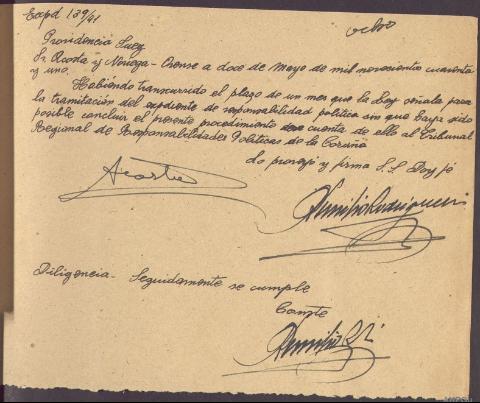 Expd 139/41
ocho
Providencia Juez
Sr. Acosta y Noriega - Orense a doce de Mayo de mil novecientos cuarenta
y uno.
Habiéndo transcurrido el plazo de un mes que la Ley señala para
la tramitación del expediente de responsabilidad politica sin que haya sido
posible concluir el presente procedimiento dese cuenta de ello al Tribunal
Regional de Responsabilidades Politicas de la Coruña
Lo proveyó y firma S.S. Doy fé
Acosta
Diligencia - Seguidamente se cumple